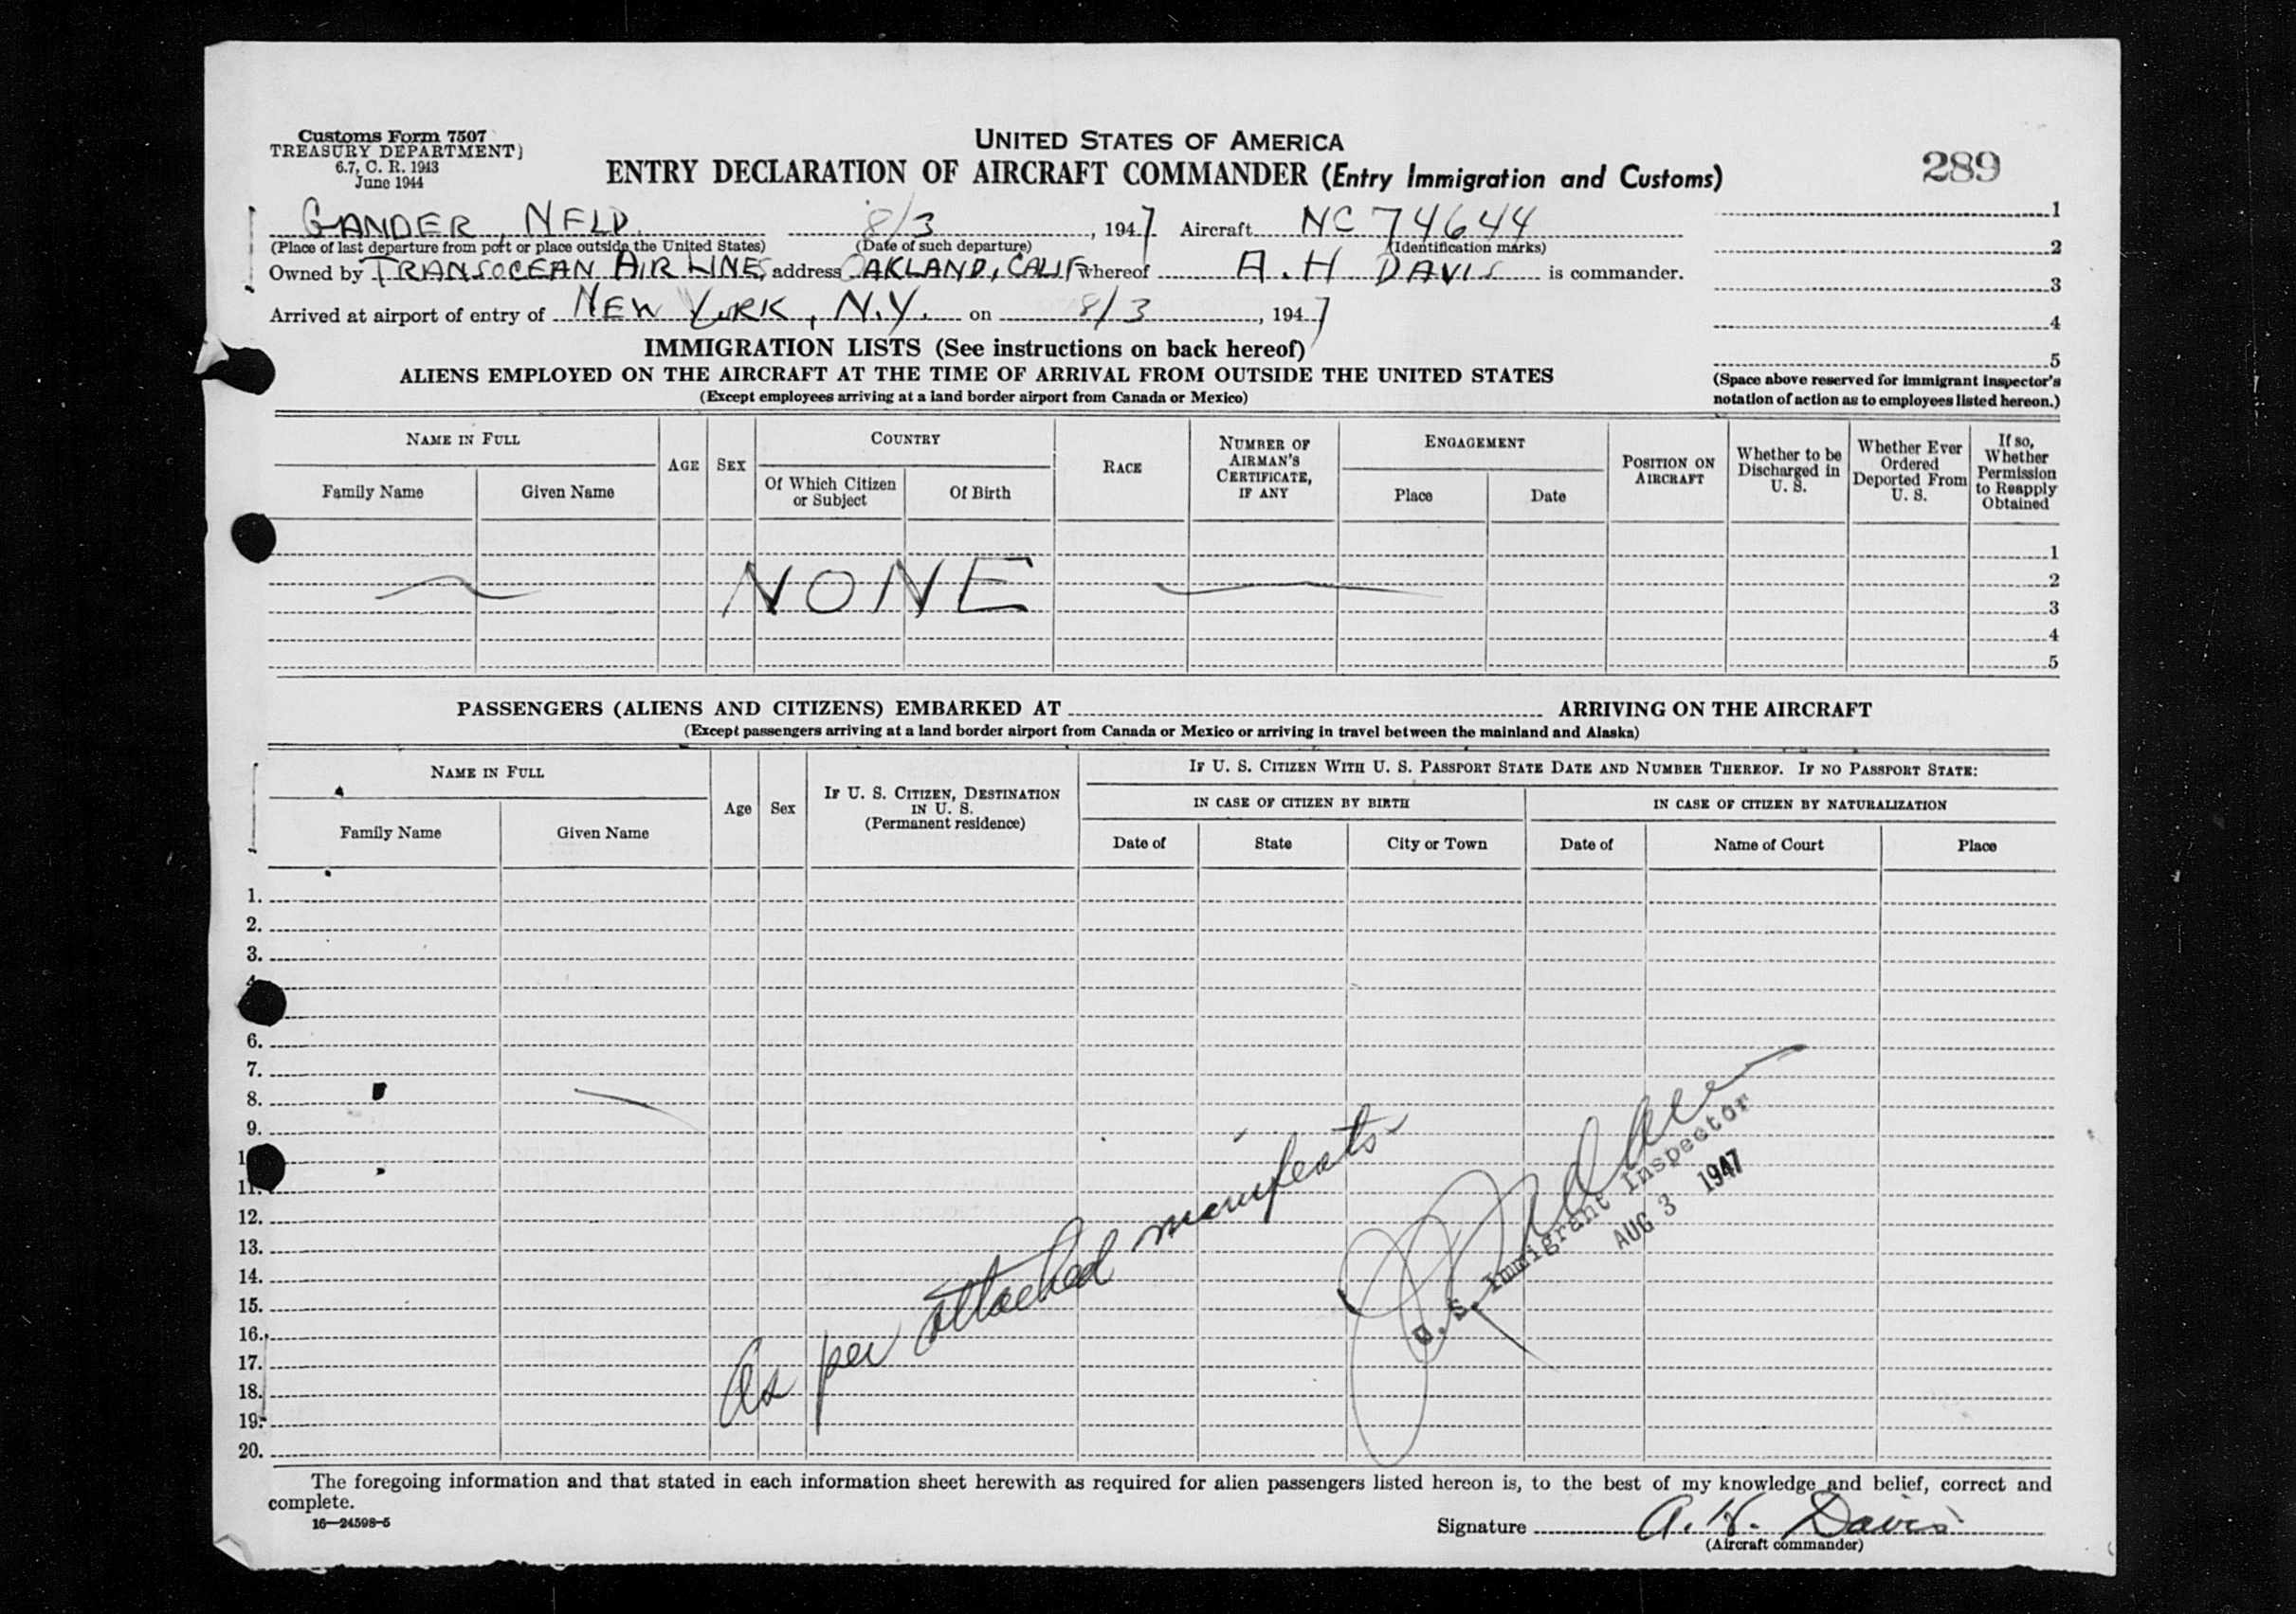 Customs Form 7507
TREASURY DEPARTMENT)
6.7, C. R. 1943
June 1944
UNITED STATES OF AMERICA
ENTRY DECLARATION OF AIRCRAFT COMMANDER (Entry Immigration and Customs)
289
GANDER, NFLD. 8/3, 1947 Aircraft NC 74644
(Place of last departure from port or place outside the United States) (Date of such departure) (Identification marks)
Owned by TRANSOCEAN AIR LINES, address OAKLAND, CALIF whereof A.H DAVIS is commander.
Arrived at airport of entry of NEW YORK, N.Y. on 8/3, 1947
1
2
3
4
5
(Space above reserved for Immigrant Inspector's
notation of action as to employees listed hereon.)
IMMIGRATION LISTS (See instructions on back hereof)
ALIENS EMPLOYED ON THE AIRCRAFT AT THE TIME OF ARRIVAL FROM OUTSIDE THE UNITED STATES
(Except employees arriving at a land border airport from Canada or Mexico)
NAME IN FULL
Family Name
Given Name
AGE
SEX
COUNTRY
Of Which Citizen
or Subject
Of Birth
RACE
NUMBER OF
AIRMAN'S
CERTIFICATE,
IF ANY
ENGAGEMENT
Place
Date
POSITION ON
AIRCRAFT
Whether to be
Discharged in
U. S.
Whether Ever
Ordered
Deported From
U. S.
If so,
Whether
Permission
to Reapply
Obtained
1
2
NONE
3
4
5
PASSENGERS (ALIENS AND CITIZENS) EMBARKED AT ARRIVING ON THE AIRCRAFT
(Except passengers arriving at a land border airport from Canada or Mexico or arriving in travel between the mainland and Alaska)
NAME IN FULL
Family Name
Given Name
Age
Sex
IF U. S. CITIZEN, DESTINATION
IN U. S.
(Permanent residence)
IF U. S. CITIZEN WITH U. S. PASSPORT STATE DATE AND NUMBER THEREOF. IF NO PASSPORT STATE:
IN CASE OF CITIZEN BY BIRTH
Date of
State
City or Town
IN CASE OF CITIZEN BY NATURALIZATION
Date of
Name of Court
Place
1.
2.
3.
6.
7.
8.
9.
11.
12.
13.
14.
15.
16.
17.
18.
19.
20.
As per attached manifests
U. S. Immigrant Inspector
AUG 3 1947
The foregoing information and that stated in each information sheet herewith as required for alien passengers listed hereon is, to the best of my knowledge and belief, correct and
complete.
16—24598-5
Signature A. H. Davis
(Aircraft commander)